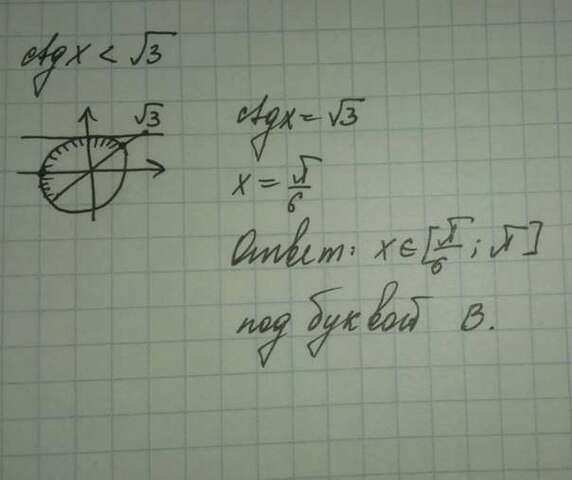 ctgx < √3
√3
ctgx = √3
x = π/6
Ответ: x ∈ [π/6; π]
под буквой В.